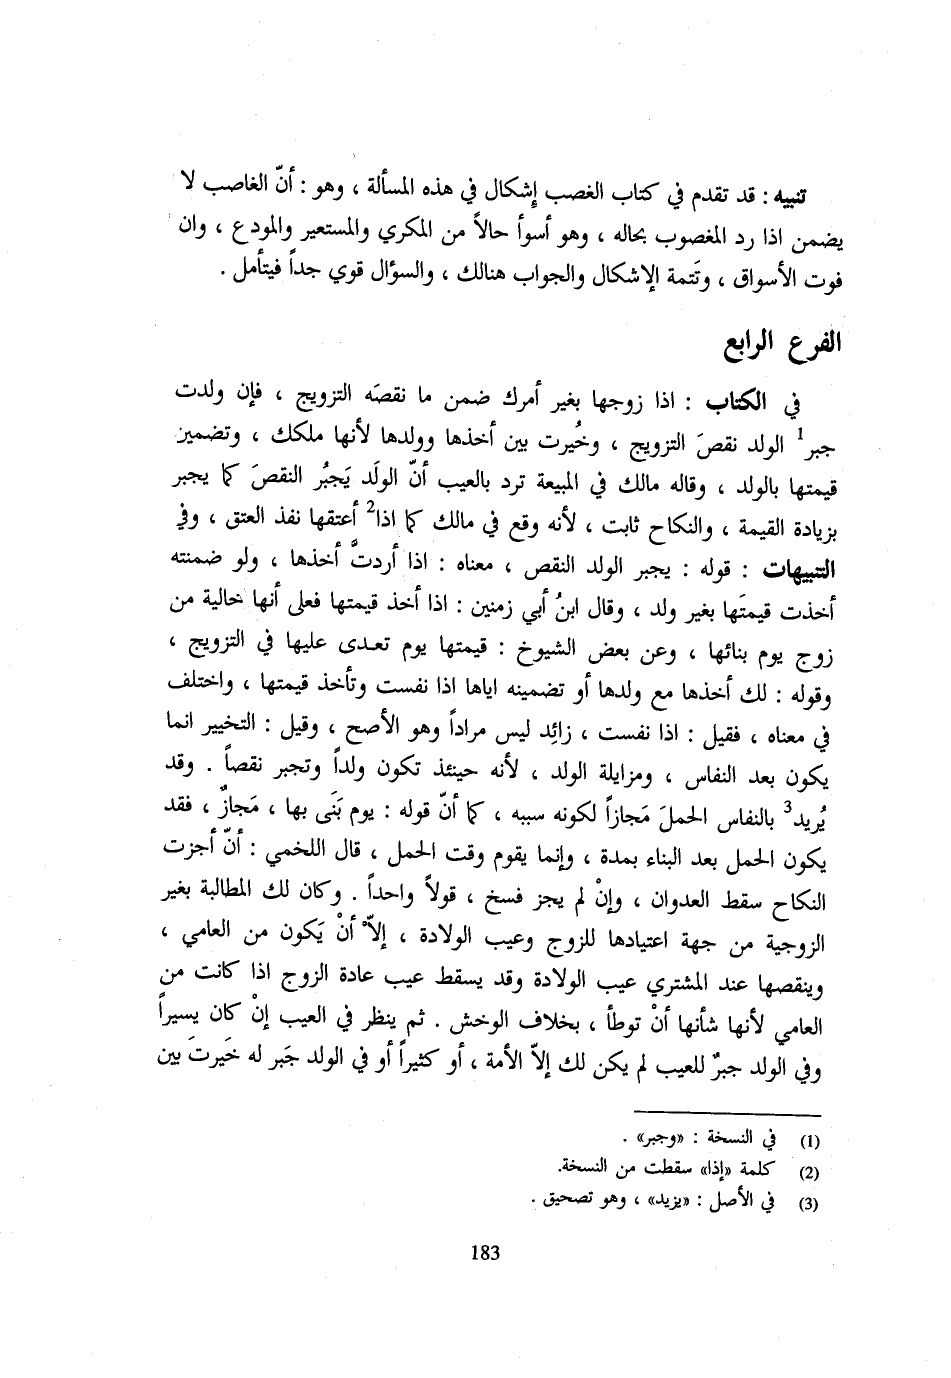 تنبيه : قد تقدم في كتاب الغصب إشكال في هذه المسألة ، وهو : أنّ الغاصب لا
يضمن اذا رد المغصوب بحاله ، وهو أسوأ حالاً من المكري والمستعير والمودع ، وان
فوت الأسواق ، وتَتمة الإشكال والجواب هنالك ، والسؤال قوي جداً فيتأمل .
الفرع الرابع
في الكتاب : اذا زوجها بغير أمرك ضمن ما نقصَه التزويج ، فإن ولدت
جبر1 الولد نقصَ التزويج ، وخُيرت بين أخذها وولدها لأنها ملكك ، وتضمين
قيمتها بالولد ، وقاله مالك في المبيعة ترد بالعيب أنّ الولَد يَجبُر النقصَ كما يجبر
بزيادة القيمة ، والنكاح ثابت ، لأنه وقع في مالك كما اذا2 أعتقها نفذ العتق ، وفي
التنبيهات : قوله : يجبر الولد النقص ، معناه : اذا أردتَّ أخذها ، ولو ضمنته
أخذت قيمتَها بغير ولد ، وقال ابنُ أبي زمنين : اذا أخذ قيمتها فعلى أنها خالية من
زوج يوم بنائها ، وعن بعض الشيوخ : قيمتها يوم تعدى عليها في التزويج ،
وقوله : لك أخذها مع ولدها أو تضمينه اياها اذا نفست وتأخذ قيمتها ، واختلف
في معناه ، فقيل : اذا نفست ، زائد ليس مراداً وهو الأصح ، وقيل : التخيير انما
يكون بعد النفاس ، ومزايلة الولد ، لأنه حينئذ تكون ولداً وتجبر نقصاً . وقد
يُريد3 بالنفاس الحملَ مَجازاً لكونه سببه ، كما أنّ قوله : يوم بَنَى بها ، مَجازٌ ، فقد
يكون الحمل بعد البناء بمدة ، وإنما يقوم وقت الحمل ، قال اللخمي : أنّ أجزت
النكاح سقط العدوان ، وإنْ لم يجز فسخ ، قولاً واحداً . وكان لك المطالبة بغير
الزوجية من جهة اعتيادها للزوج وعيب الولادة ، إلاّ أنْ يَكون من العامي ،
وينقصها عند المشتري عيب الولادة وقد يسقط عيب عادة الزوج اذا كانت من
العامي لأنها شأنها أنْ توطأ ، بخلاف الوخش . ثم ينظر في العيب إنْ كان يسيراً
وفي الولد جبرٌ للعيب لم يكن لك إلاّ الأمة ، أو كثيراً أو في الولد جَبر له خَيرتَ بين
(1) في النسخة : «وجبر» .
(2) كلمة «إذا» سقطت من النسخة.
(3) في الأصل : «يزيد» ، وهو تصحيق .
183